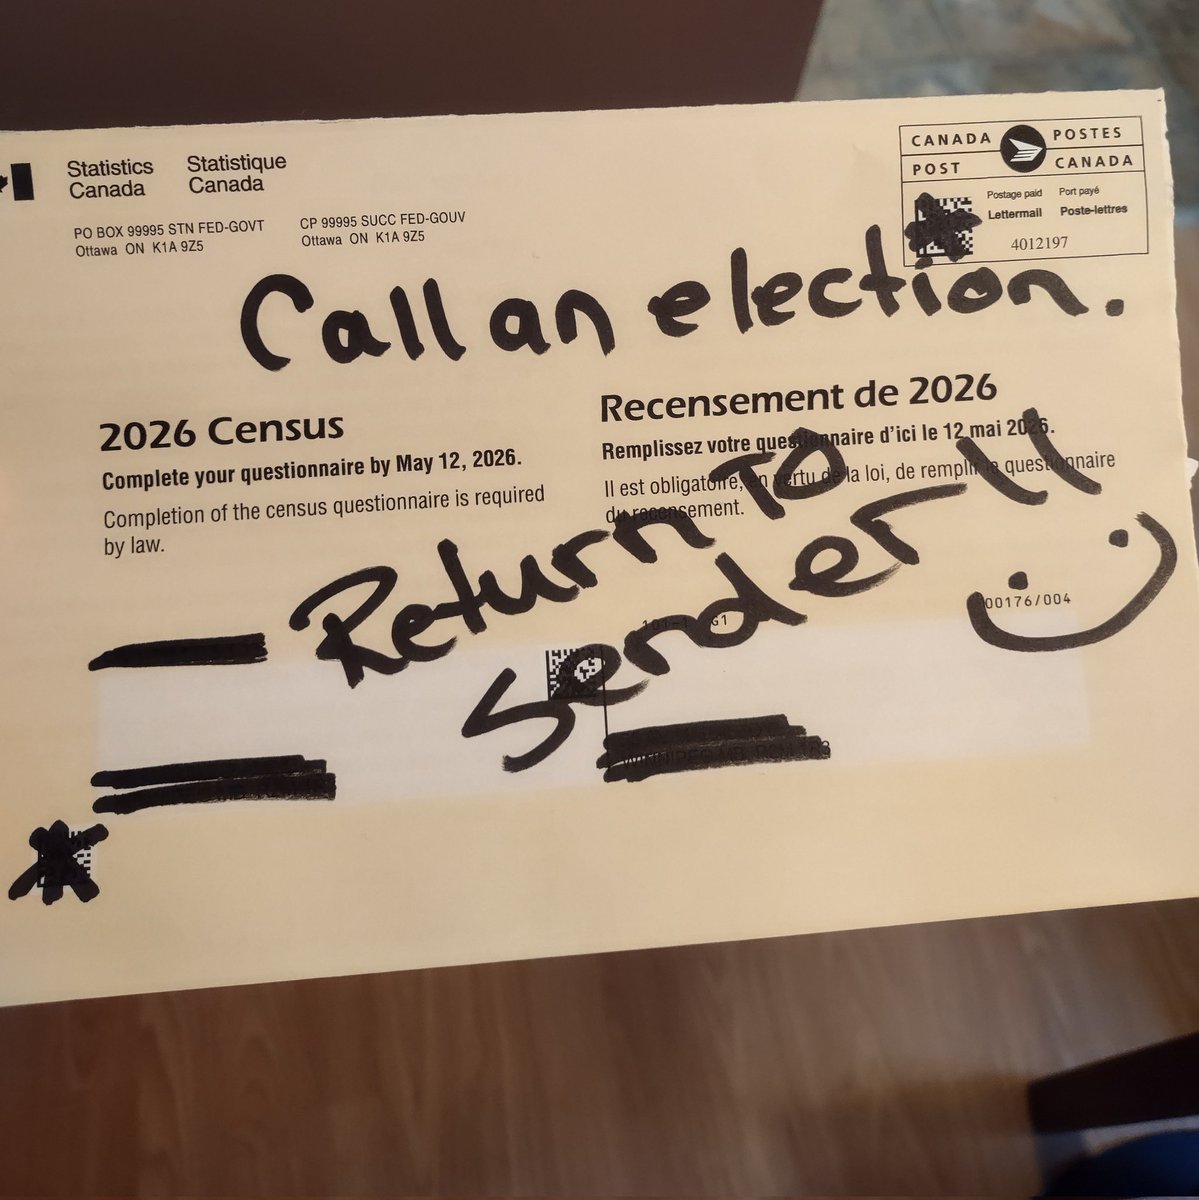 Statistics Canada
Statistique Canada
PO BOX 99995 STN FED-GOVT
Ottawa ON K1A 9Z5
CP 99995 SUCC FED-GOUV
Ottawa ON K1A 9Z5
CANADA POST
POSTES CANADA
Postage paid
Port payé
Lettermail
Poste-lettres
4012197
Call an election.
2026 Census
Complete your questionnaire by May 12, 2026.
Completion of the census questionnaire is required
by law.
Recensement de 2026
Remplissez votre questionnaire d'ici le 12 mai 2026.
Il est obligatoire, en vertu de la loi, de remplir le questionnaire
du recensement.
Return To
Sender!!
00176/004
WINNIPEG MB